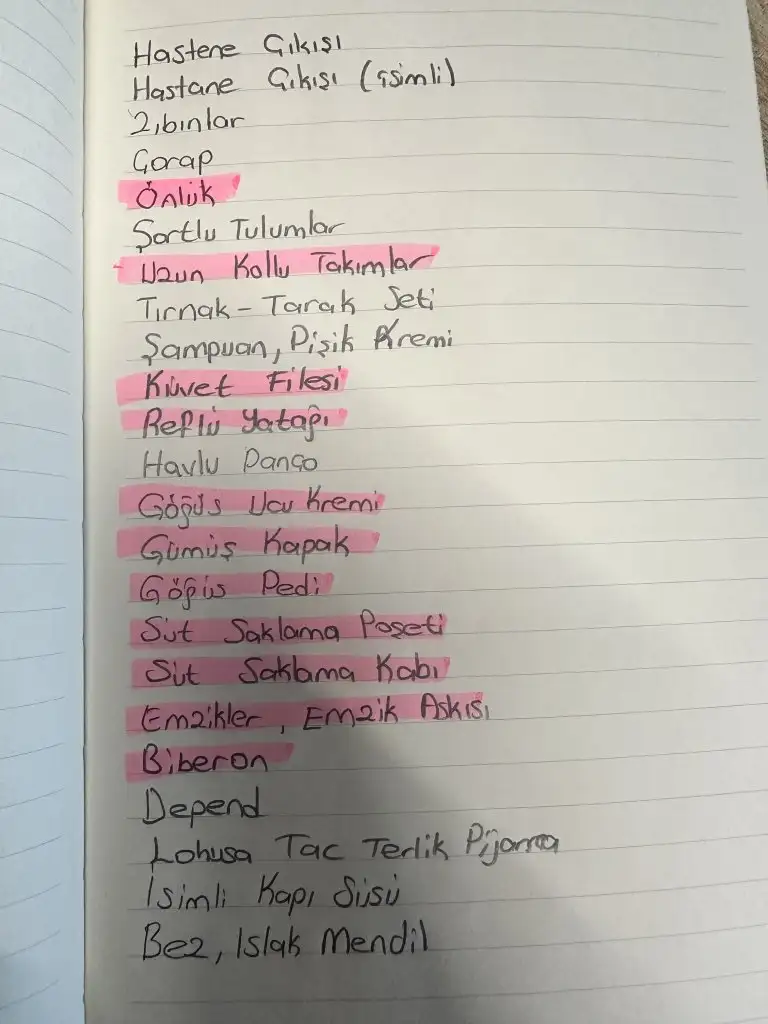 Hastene Çıkışı
Hastane Çıkışı (isimli)
Zıbınlar
Çorap
Önlük
Şortlu Tulumlar
Uzun Kollu Takımlar
Tırnak - Tarak Seti
Şampuan, Pişik Kremi
Küvet Filesi
Reflü Yatağı
Havlu Panço
Göğüs Ucu Kremi
Gümüş Kapak
Göğüs Pedi
Süt Saklama Poşeti
Süt Saklama Kabı
Emzikler, Emzik Askısı
Biberon
Depend
Lohusa Tac Terlik Pijama
İsimli Kapı Süsü
Bez, Islak Mendil